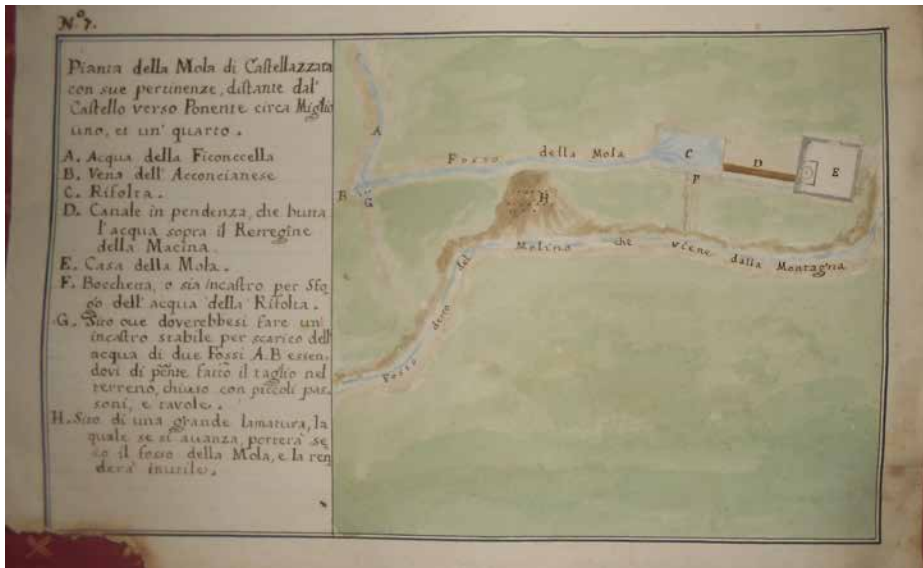 N.º 7.
Pianta della Mola di Castellazzata
con sue pertinenze, distante dal'
Castello verso Ponente circa Miglio
uno, et un' quarto.
A. Acqua della Ficonccella
B. Vena dell' Acconcianese
C. Rifolta.
D. Canale in pendenza, che butta
l'acqua sopra il Retregine
della Macina.
E. Casa della Mola.
F. Bocchetta, o sia incastro per Sfo
go dell' acqua della Rifolta.
G. Sito oue doverebbesi fare un'
incastro stabile per scarico dell'
acqua di due Fossi A.B essen.
dovi di pñte fatto il taglio nel
terreno, chiuso con piccoli pas
soni, e tavole.
H. Sito di una grande lamatura, la
quale se si auanza, porterà se
co il fosso della Mola, e la ren
derà inutile.
A
Fosso della Mola
C
D
E
F
B
G
H
Fosso detto del Molino che viene dalla Montagna